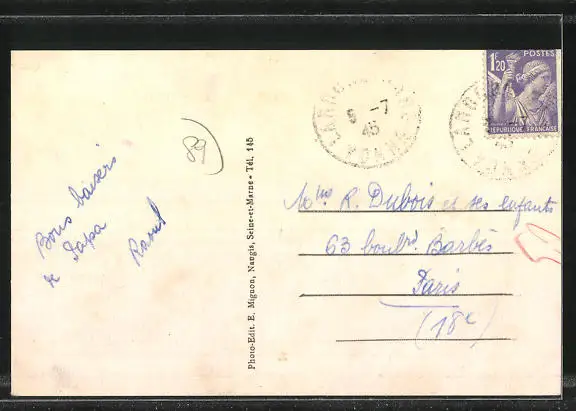 Bons baisers
de Papa
Raoul
89
Photo-Edit. E. Mignon, Nangis, Seine-et-Marne - Tél. 145
5 -7
45
POSTES
1F20
REPUBLIQUE FRANÇAISE
Mme R. Dubois et ses enfants
63 boulrd Barbès
Paris
(18e)